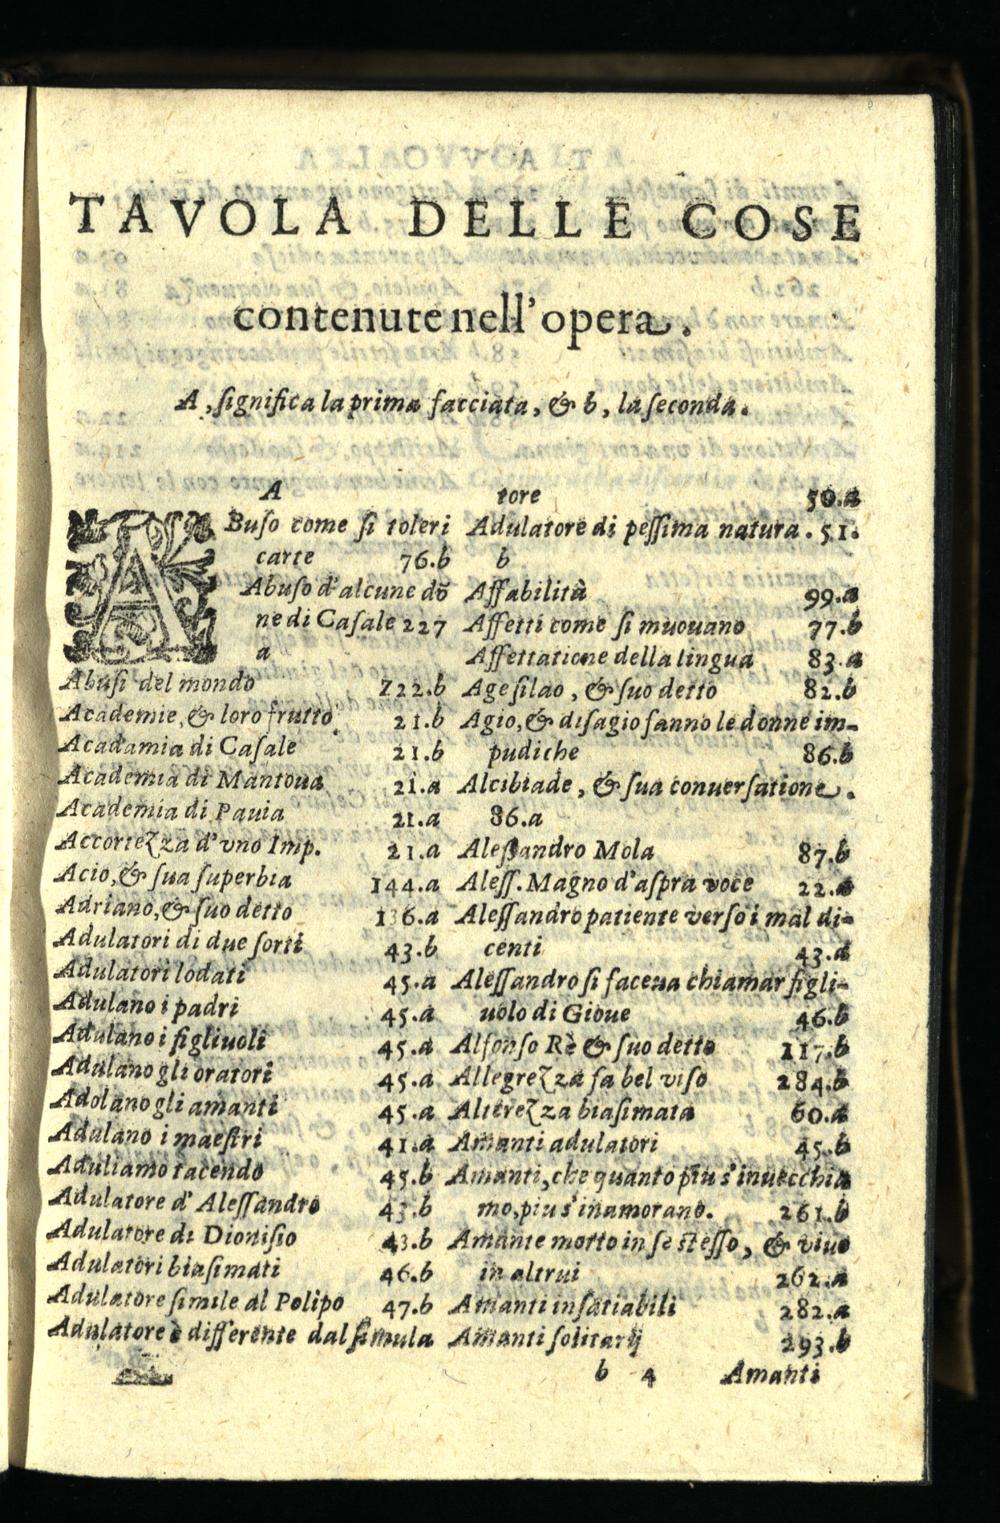 TAVOLA DELLE COSE
contenute nell'opera.
A, significa la prima facciata, & b, la seconda.
A
ABuso come si toleri
carte 76.b
Abuso d'alcune dō
ne di Casale 227
a
Abusi del mondo 222.b
Academie, & loro frutto 21.b
Acadamia di Casale 21.b
Academia di Mantoua 21.a
Academia di Pauia 21.a
Accortezza d'vno Imp. 21.a
Acio, & sua superbia 144.a
Adriano, & suo detto 136.a
Adulatori di due sorti 43.b
Adulatori lodati 45.a
Adulano i padri 45.a
Adulano i figliuoli 45.a
Adulano gli oratori 45.a
Adolano gli amanti 45.a
Adulano i maestri 41.a
Aduliamo tacendo 45.b
Adulatore d'Alessandro 43.b
Adulatore di Dionisio 43.b
Adulatori biasimati 46.b
Adulatore simile al Polipo 47.b
Adulatore è differente dal simula
tore 50.a
Adulatore di pessima natura. 51.
b
Affabilità 99.a
Affetti come si muouano 77.b
Affettatione della lingua 83.a
Agesilao, & suo detto 82.b
Agio, & disagio fanno le donne im-
pudiche 86.b
Alcibiade, & sua conuersatione.
86.a
Alessandro Mola 87.b
Aless. Magno d'aspra voce 22.a
Alessandro patiente verso i mal di-
centi 43.a
Alessandro si faceua chiamar figli-
uolo di Gioue 46.b
Alfonso Rè & suo detto 117.b
Allegrezza fa bel viso 284.b
Alterezza biasimata 60.a
Amanti adulatori 45.b
Amanti, che quanto piu s'inuecchia
mo, piu s'inamorano. 261.b
Amante morto in se stesso, & viuo
in altrui 262.a
Amanti insatiabili 282.a
Amanti solitarij 293.b
b 4 Amanti